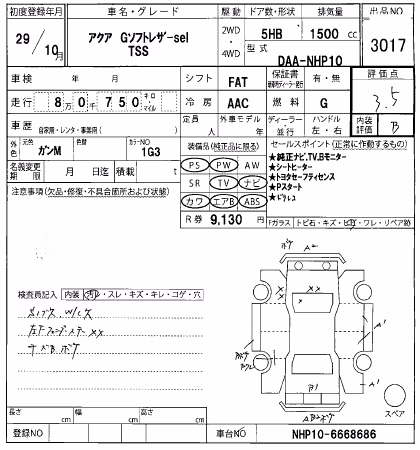 初度登録年月 車名・グレード 駆動 ドア数・形状 排気量 出品NO
29/10月 アクア Gソフトレザｰsel TSS 2WD・4WD 5HB 1500cc 3017
型式 DAA-NHP10
車検 年 月 シフト FAT 保証書 有・無 評価点 3.5
走行 8万0千750 キロ・マイル 冷房 AAC 燃料 G 内装評価 B
車歴 自家用・レンタ・事業用( ) 定員 人 外車モデル 年 ディーラー 並行 ハンドル 左・右
外色 元色 ガンM 色替 カラーNO 1G3
名義変更期限 月 日迄 積載 t
装備品(純正品に限る) セールスポイント(正常に作動するもの)
PS PW AW
SR TV ナビ
カワ エアB ABS
R券 9,130円
★純正ナビ,TV,Bモニター
★シートヒーター
★トヨタセーフティセンス
★Pスタート
★ドラレコ
Fガラス トビ石・キズ・ヒビ・ワレ・リペア跡
注意事項(欠品・修復・不具合箇所および状態)
検査員記入 内装 汚・スレ・キズ・キレ・コゲ・穴
ボケ A2
XX
A'
A'
B1
AB2ボケ
スペア
長さ cm 幅 cm 高さ cm
登録NO 車台NO NHP10-6668686